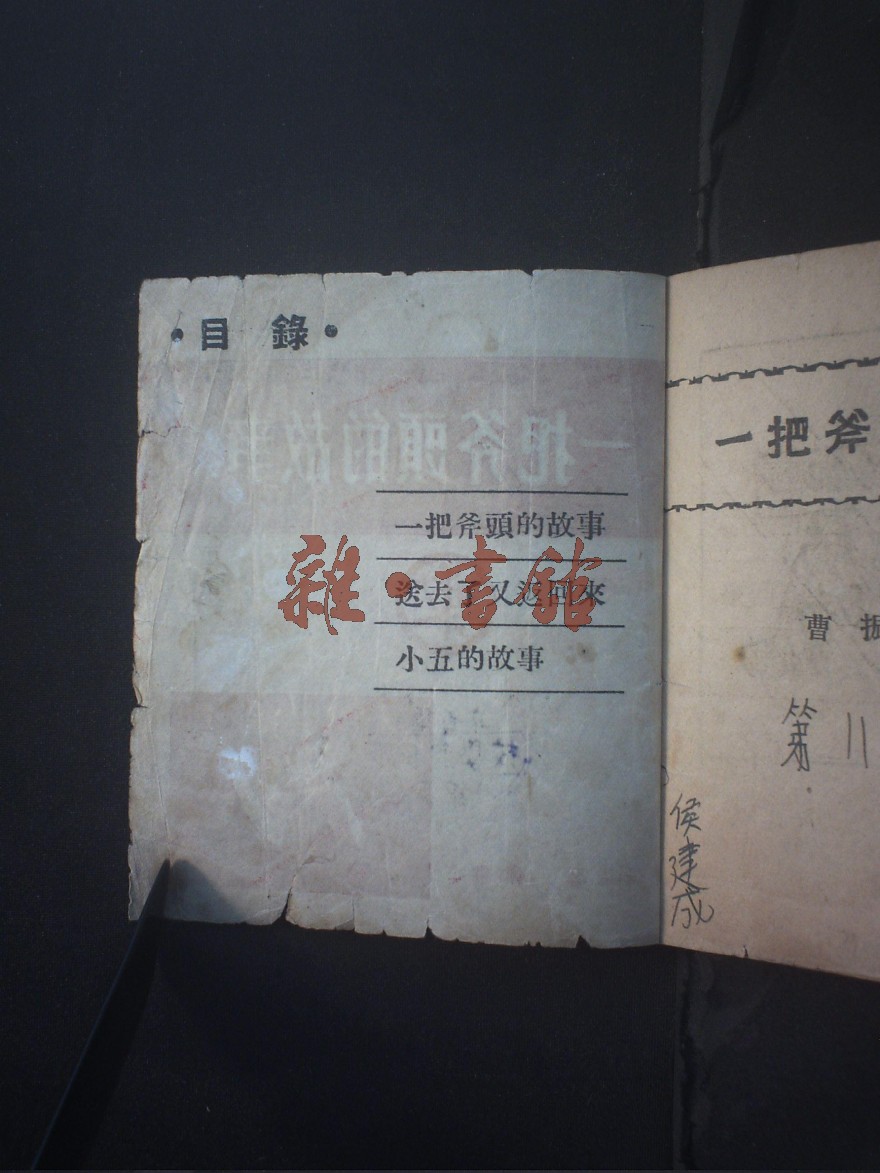 ·目 錄·
一把斧頭的故事
送去了又送回來
小五的故事
雜·書館
一把斧
曹 振
第 11
侯建成